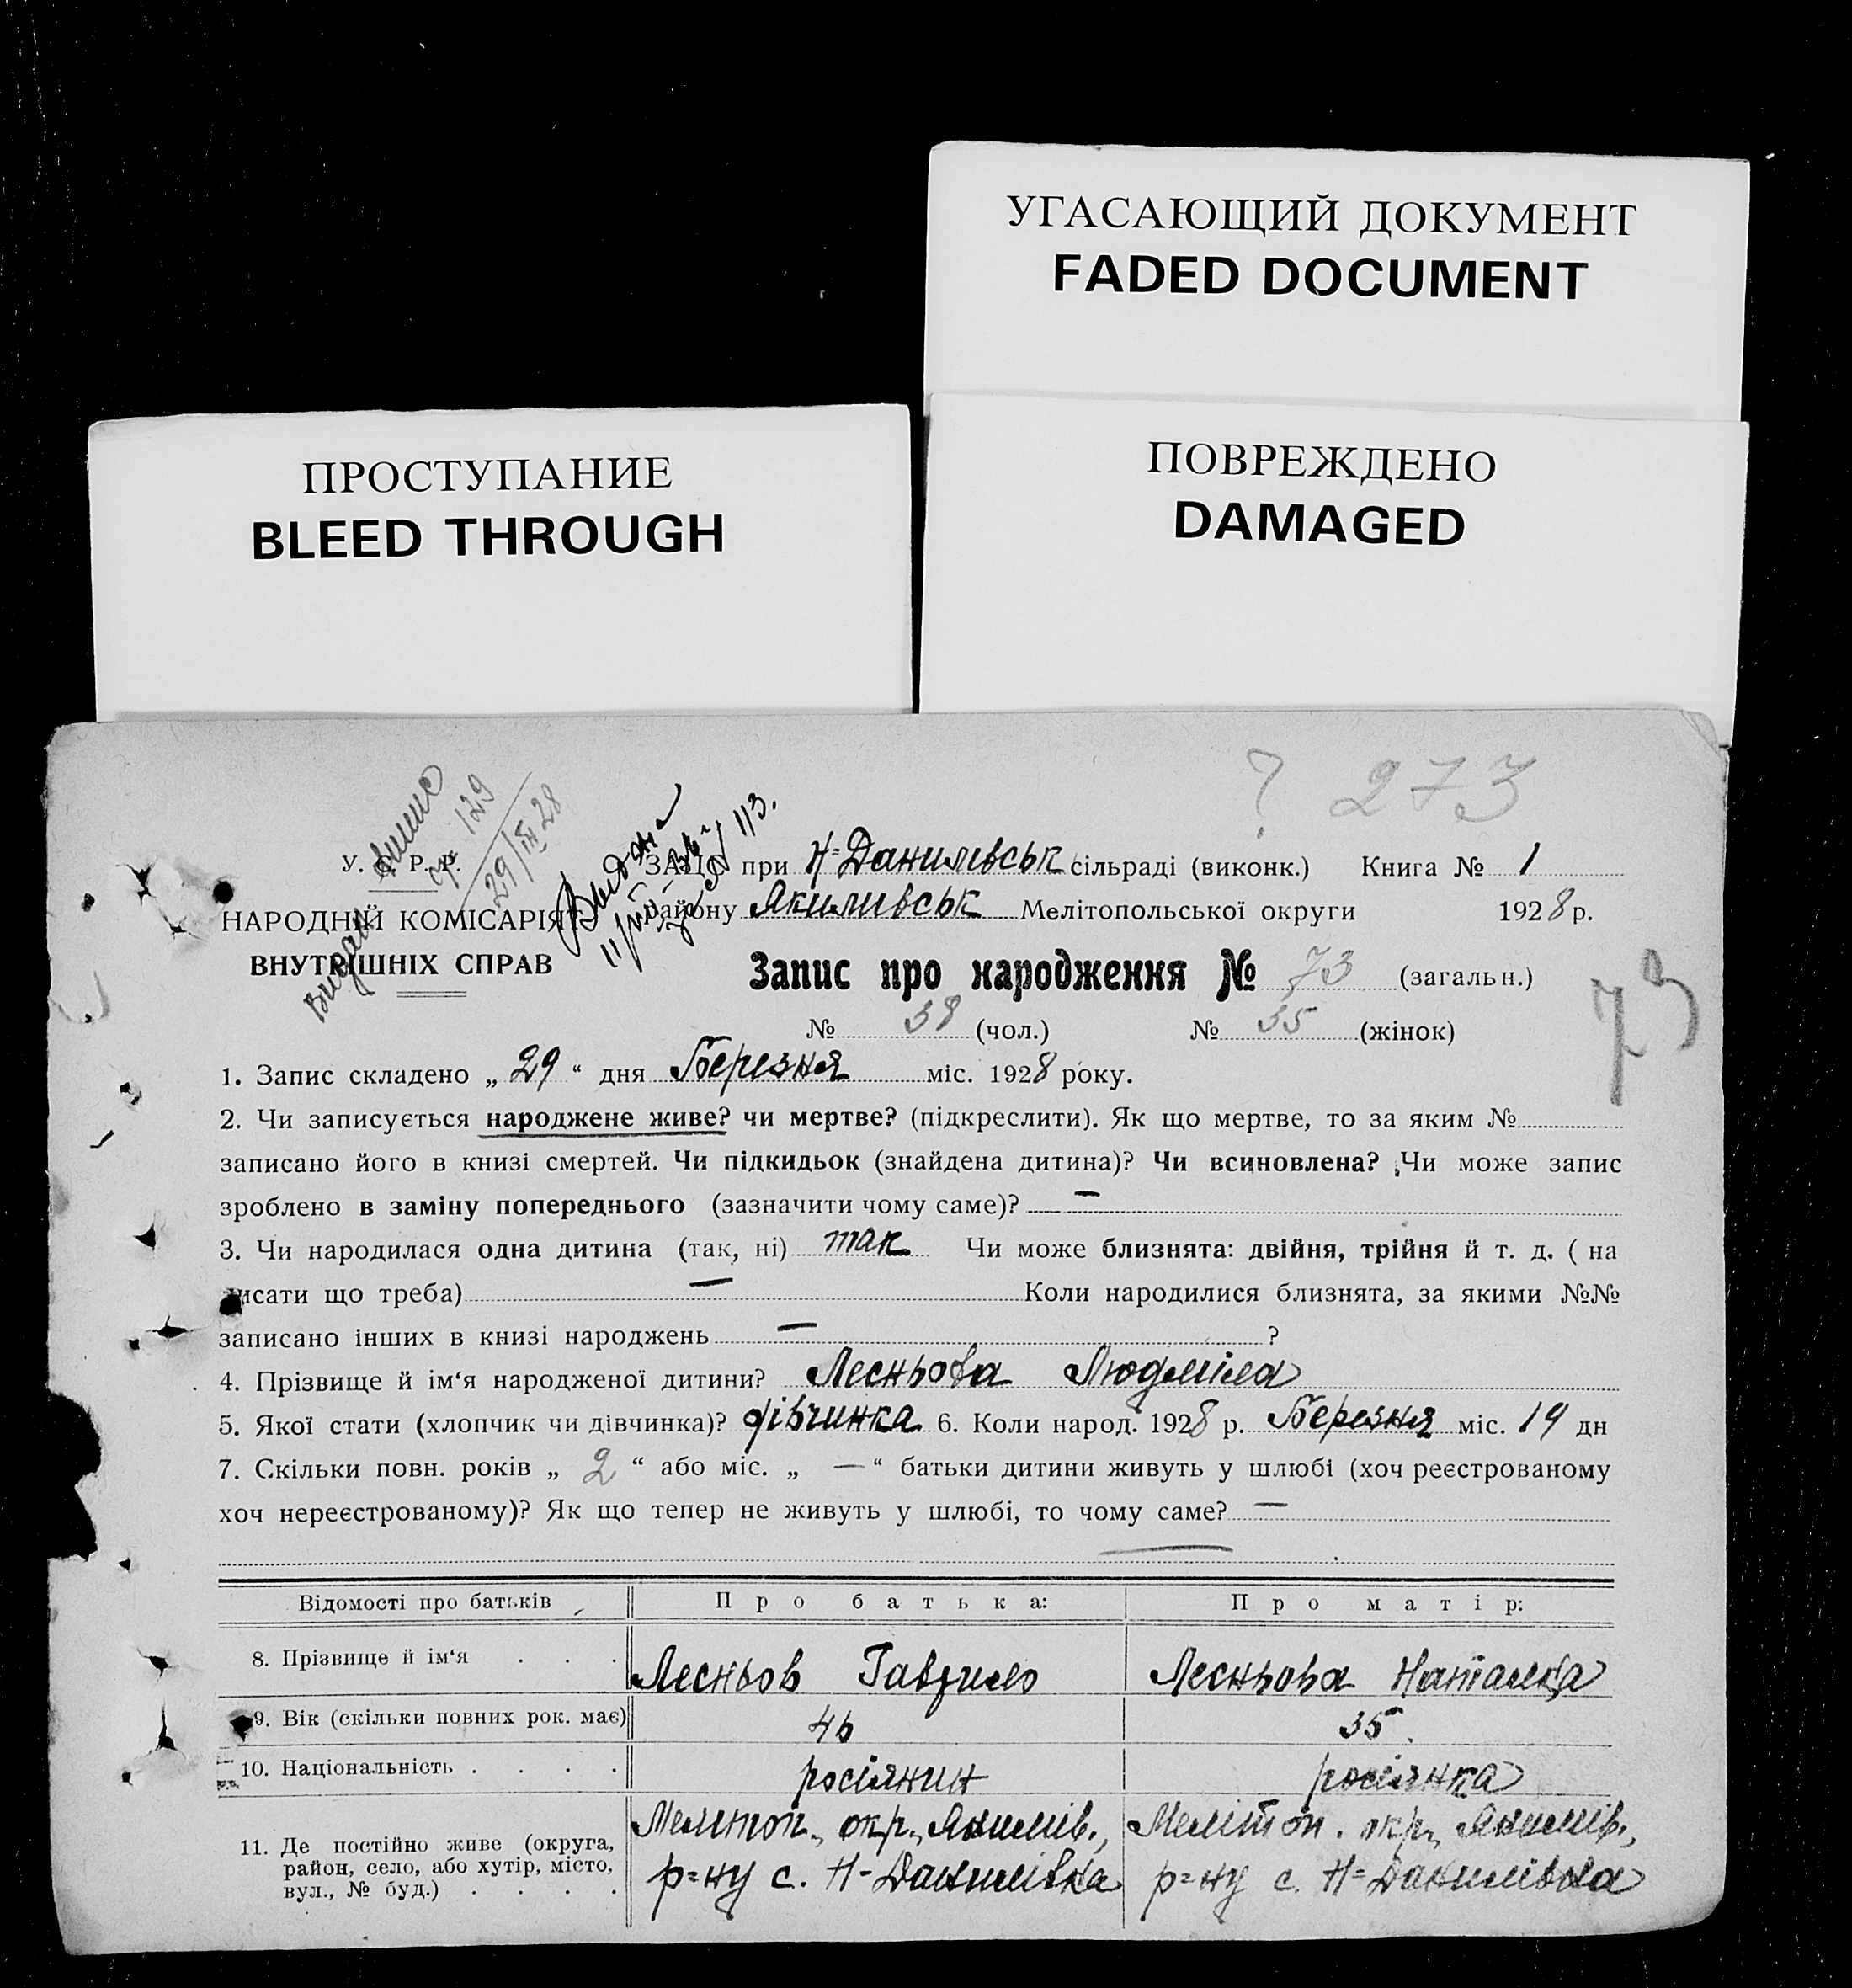 УГАСАЮЩИЙ ДОКУМЕНТ
FADED DOCUMENT
ПРОСТУПАНИЕ
BLEED THROUGH
ПОВРЕЖДЕНО
DAMAGED
? 273
129
29/III 28
113.
У. С. Р. Р.
ЗАЦС при Н=Данилівськ сільраді (виконк.) Книга № 1
НАРОДНІЙ КОМІСАРІЯТ
району Якимівськ Мелітопольської округи 1928 р.
ВНУТРІШНІХ СПРАВ
Видан
Запис про народження № 73 (загальн.)
73
№ 38 (чол.) № 35 (жінок)
1. Запис складено „ 29 “ дня Березня міс. 1928 року.
2. Чи записується народжене живе? чи мертве? (підкреслити). Як що мертве, то за яким №
записано його в книзі смертей. Чи підкидьок (знайдена дитина)? Чи всиновлена? Чи може запис
зроблено в заміну попереднього (зазначити чому саме)? —
3. Чи народилася одна дитина (так, ні) так Чи може близнята: двійня, трійня й т. д. ( на
писати що треба) — Коли народилися близнята, за якими №№
записано інших в книзі народжень — ?
4. Прізвище й ім‘я народженої дитини? Лесньова Людміла
5. Якої стати (хлопчик чи дівчинка)? дівчинка 6. Коли народ. 1928 р. Березня міс. 19 дн
7. Скільки повн. років „ 2 “ або міс. „ — “ батьки дитини живуть у шлюбі (хоч реєстрованому
хоч нереєстрованому)? Як що тепер не живуть у шлюбі, то чому саме? —
Відомості про батьків Про батька: Про матір:
8. Прізвище й ім‘я . . . Лесньов Гаврило Лесньова Наталка
9. Вік (скільки повних рок. має) 46 35.
10. Національність . . . . росіянин росіянка
11. Де постійно живе (округа, Мелітоп. окр., Якимів., Мелітоп. окр., Якимів.,
район, село, або хутір, місто, р=ну с. Н-Данилівка р=ну с. Н=Данилівка
вул., № буд.) . . . .